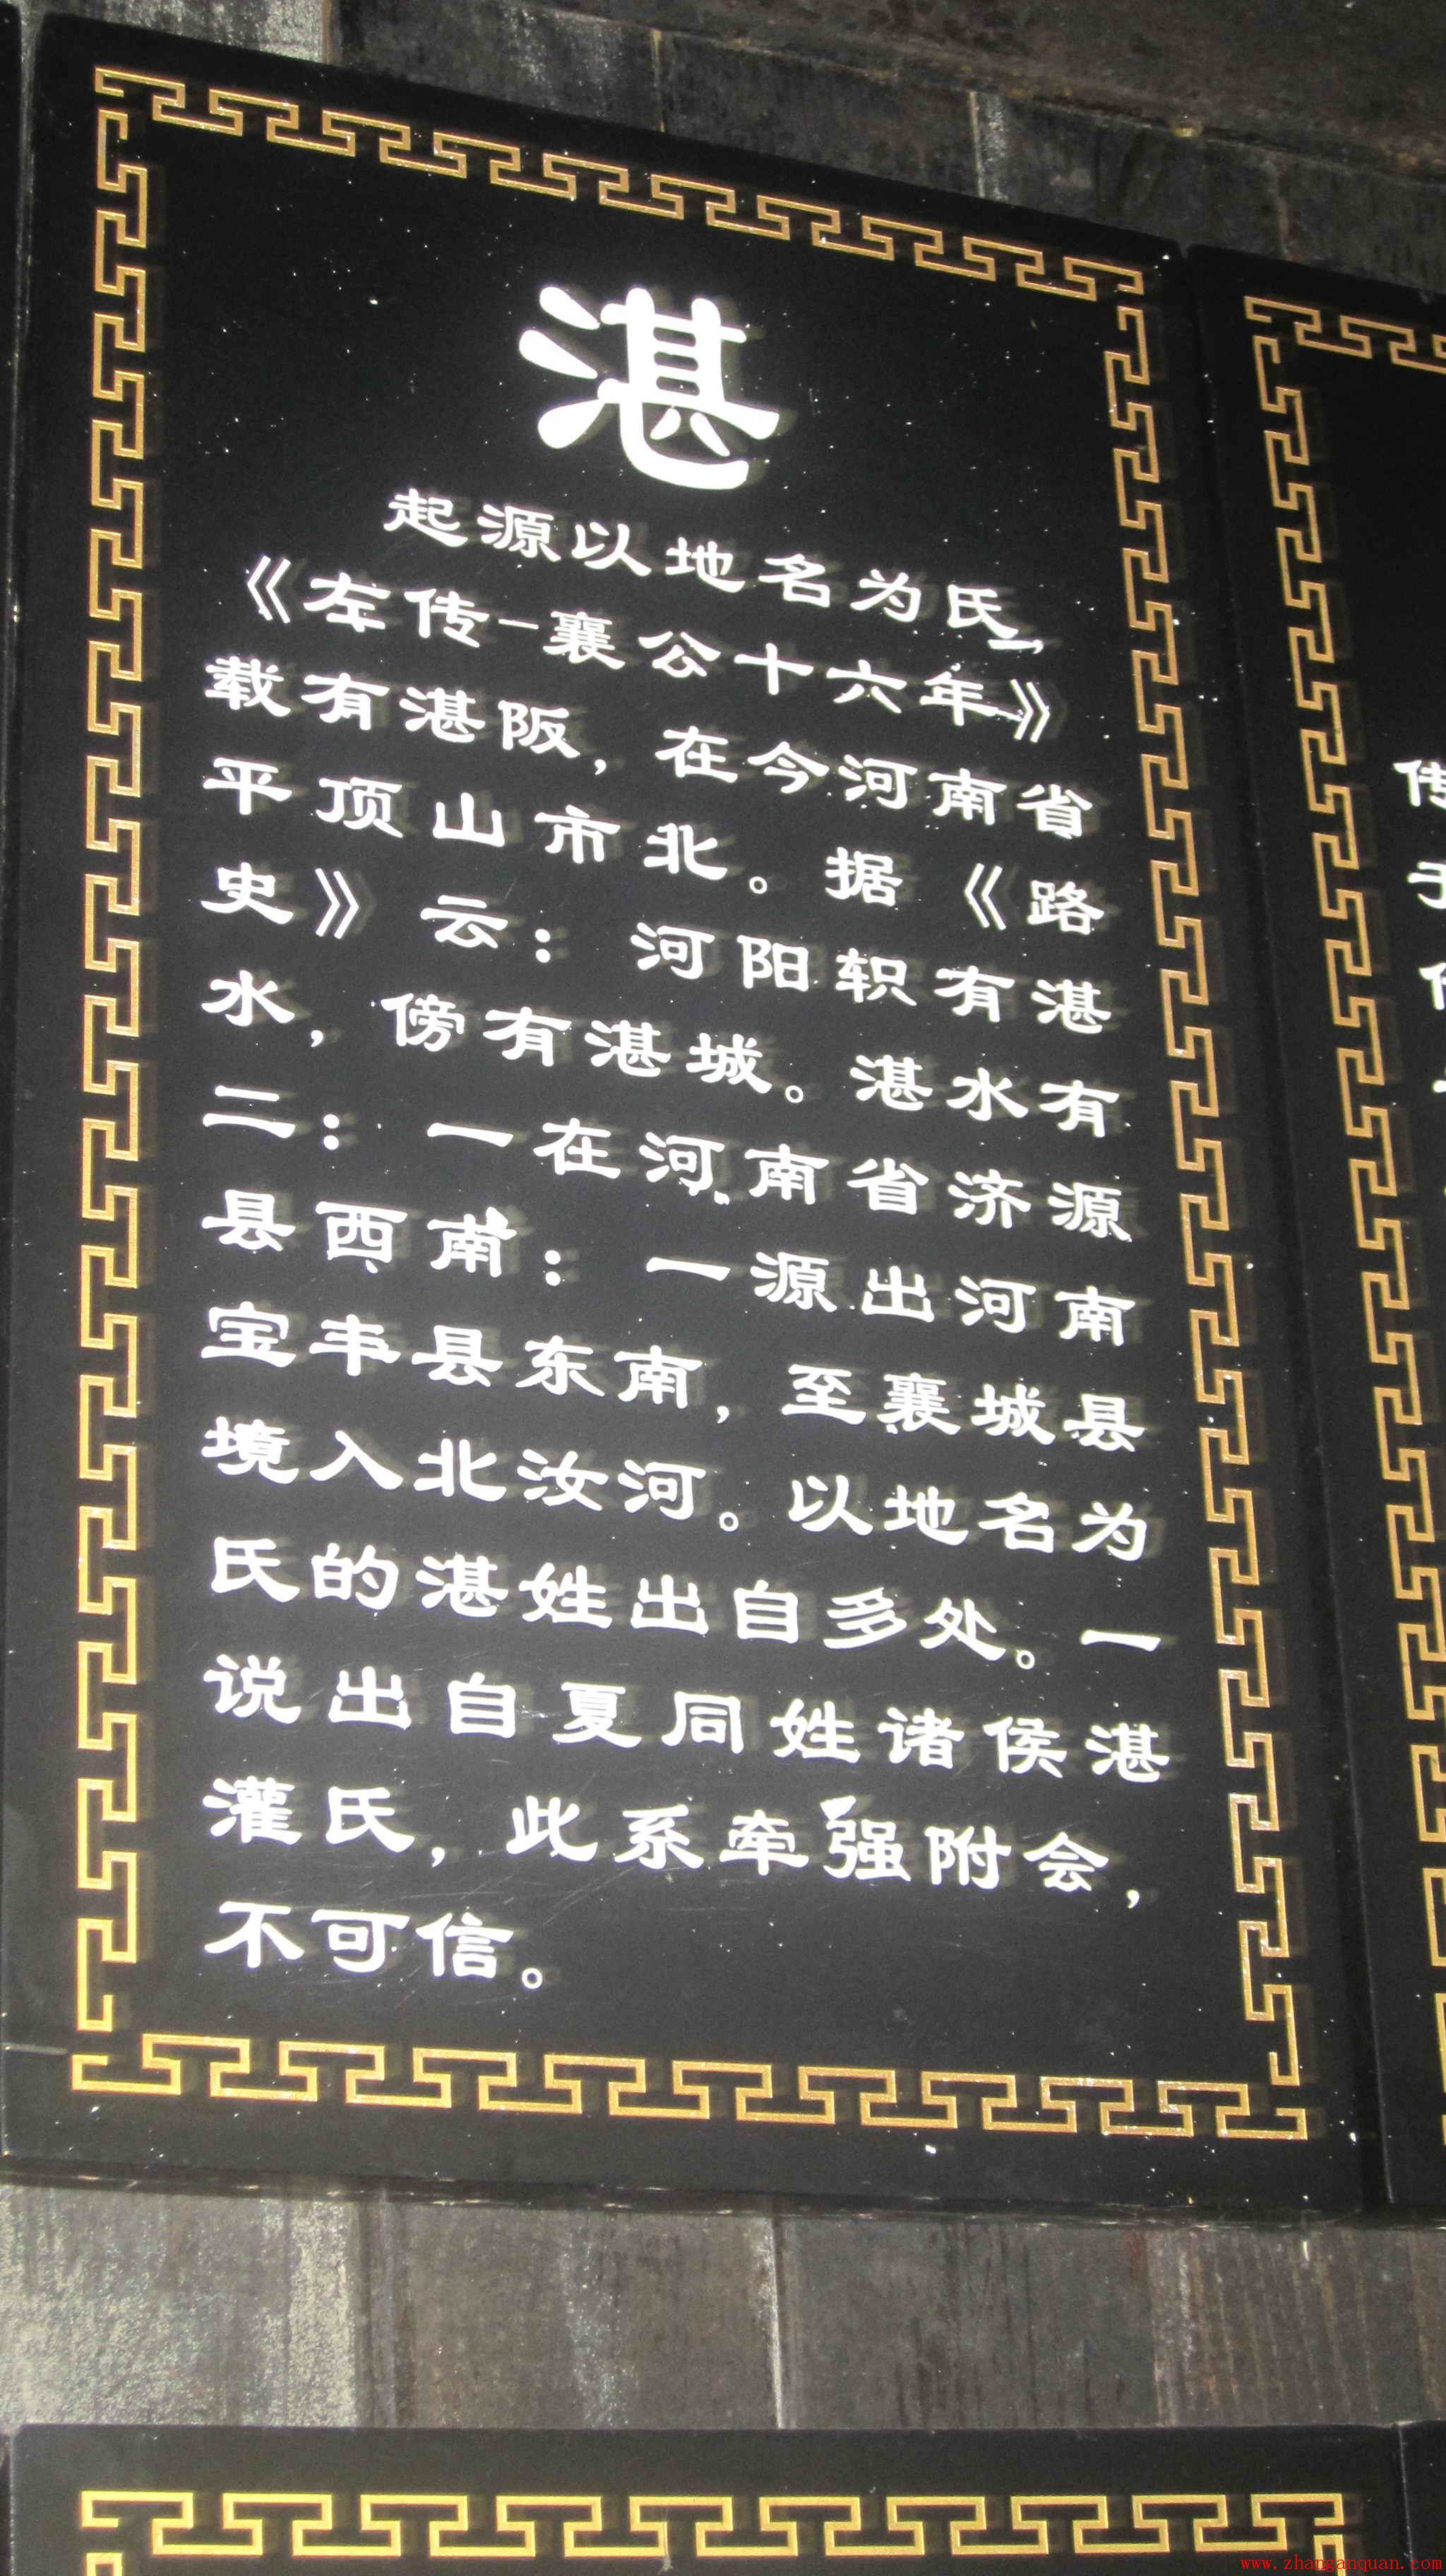 湛
起源以地名为氏，
《左传-襄公十六年》
载有湛阪，在今河南省
平顶山市北。据《路
史》云：河阳轵有湛
水，傍有湛城。湛水有
二：一在河南省济源
县西南：一源出河南
宝丰县东南，至襄城县
境入北汝河。以地名为
氏的湛姓出自多处。一
说出自夏同姓诸侯湛
灌氏，此系牵强附会，
不可信。
传
www.zhanganquan.com